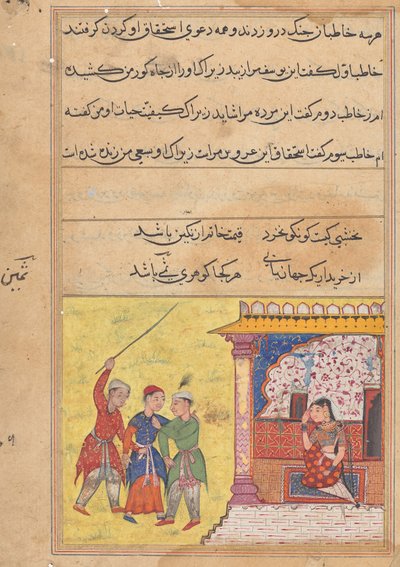 هر سه خاطبان جنگ در و زدند و همه دعوی استحقاق او کردن گرفتند
خاطب اول گفت این یوسف مرا زیبد زیراک او را از چاه کور من کشیده
ام خاطب دوم گفت این مرده مرا شاید زیراک کیفیت حیات او من گفته
ام خاطب سیوم گفت استحقاق این عروس مراست زیراک او بسعی من زنده شده است
نخشبی کیست کو نکو نخرد قیمت خاتم از نگین باشد
از خریدار یک جهان یابی هر کجا کوهری باشد
ثمین